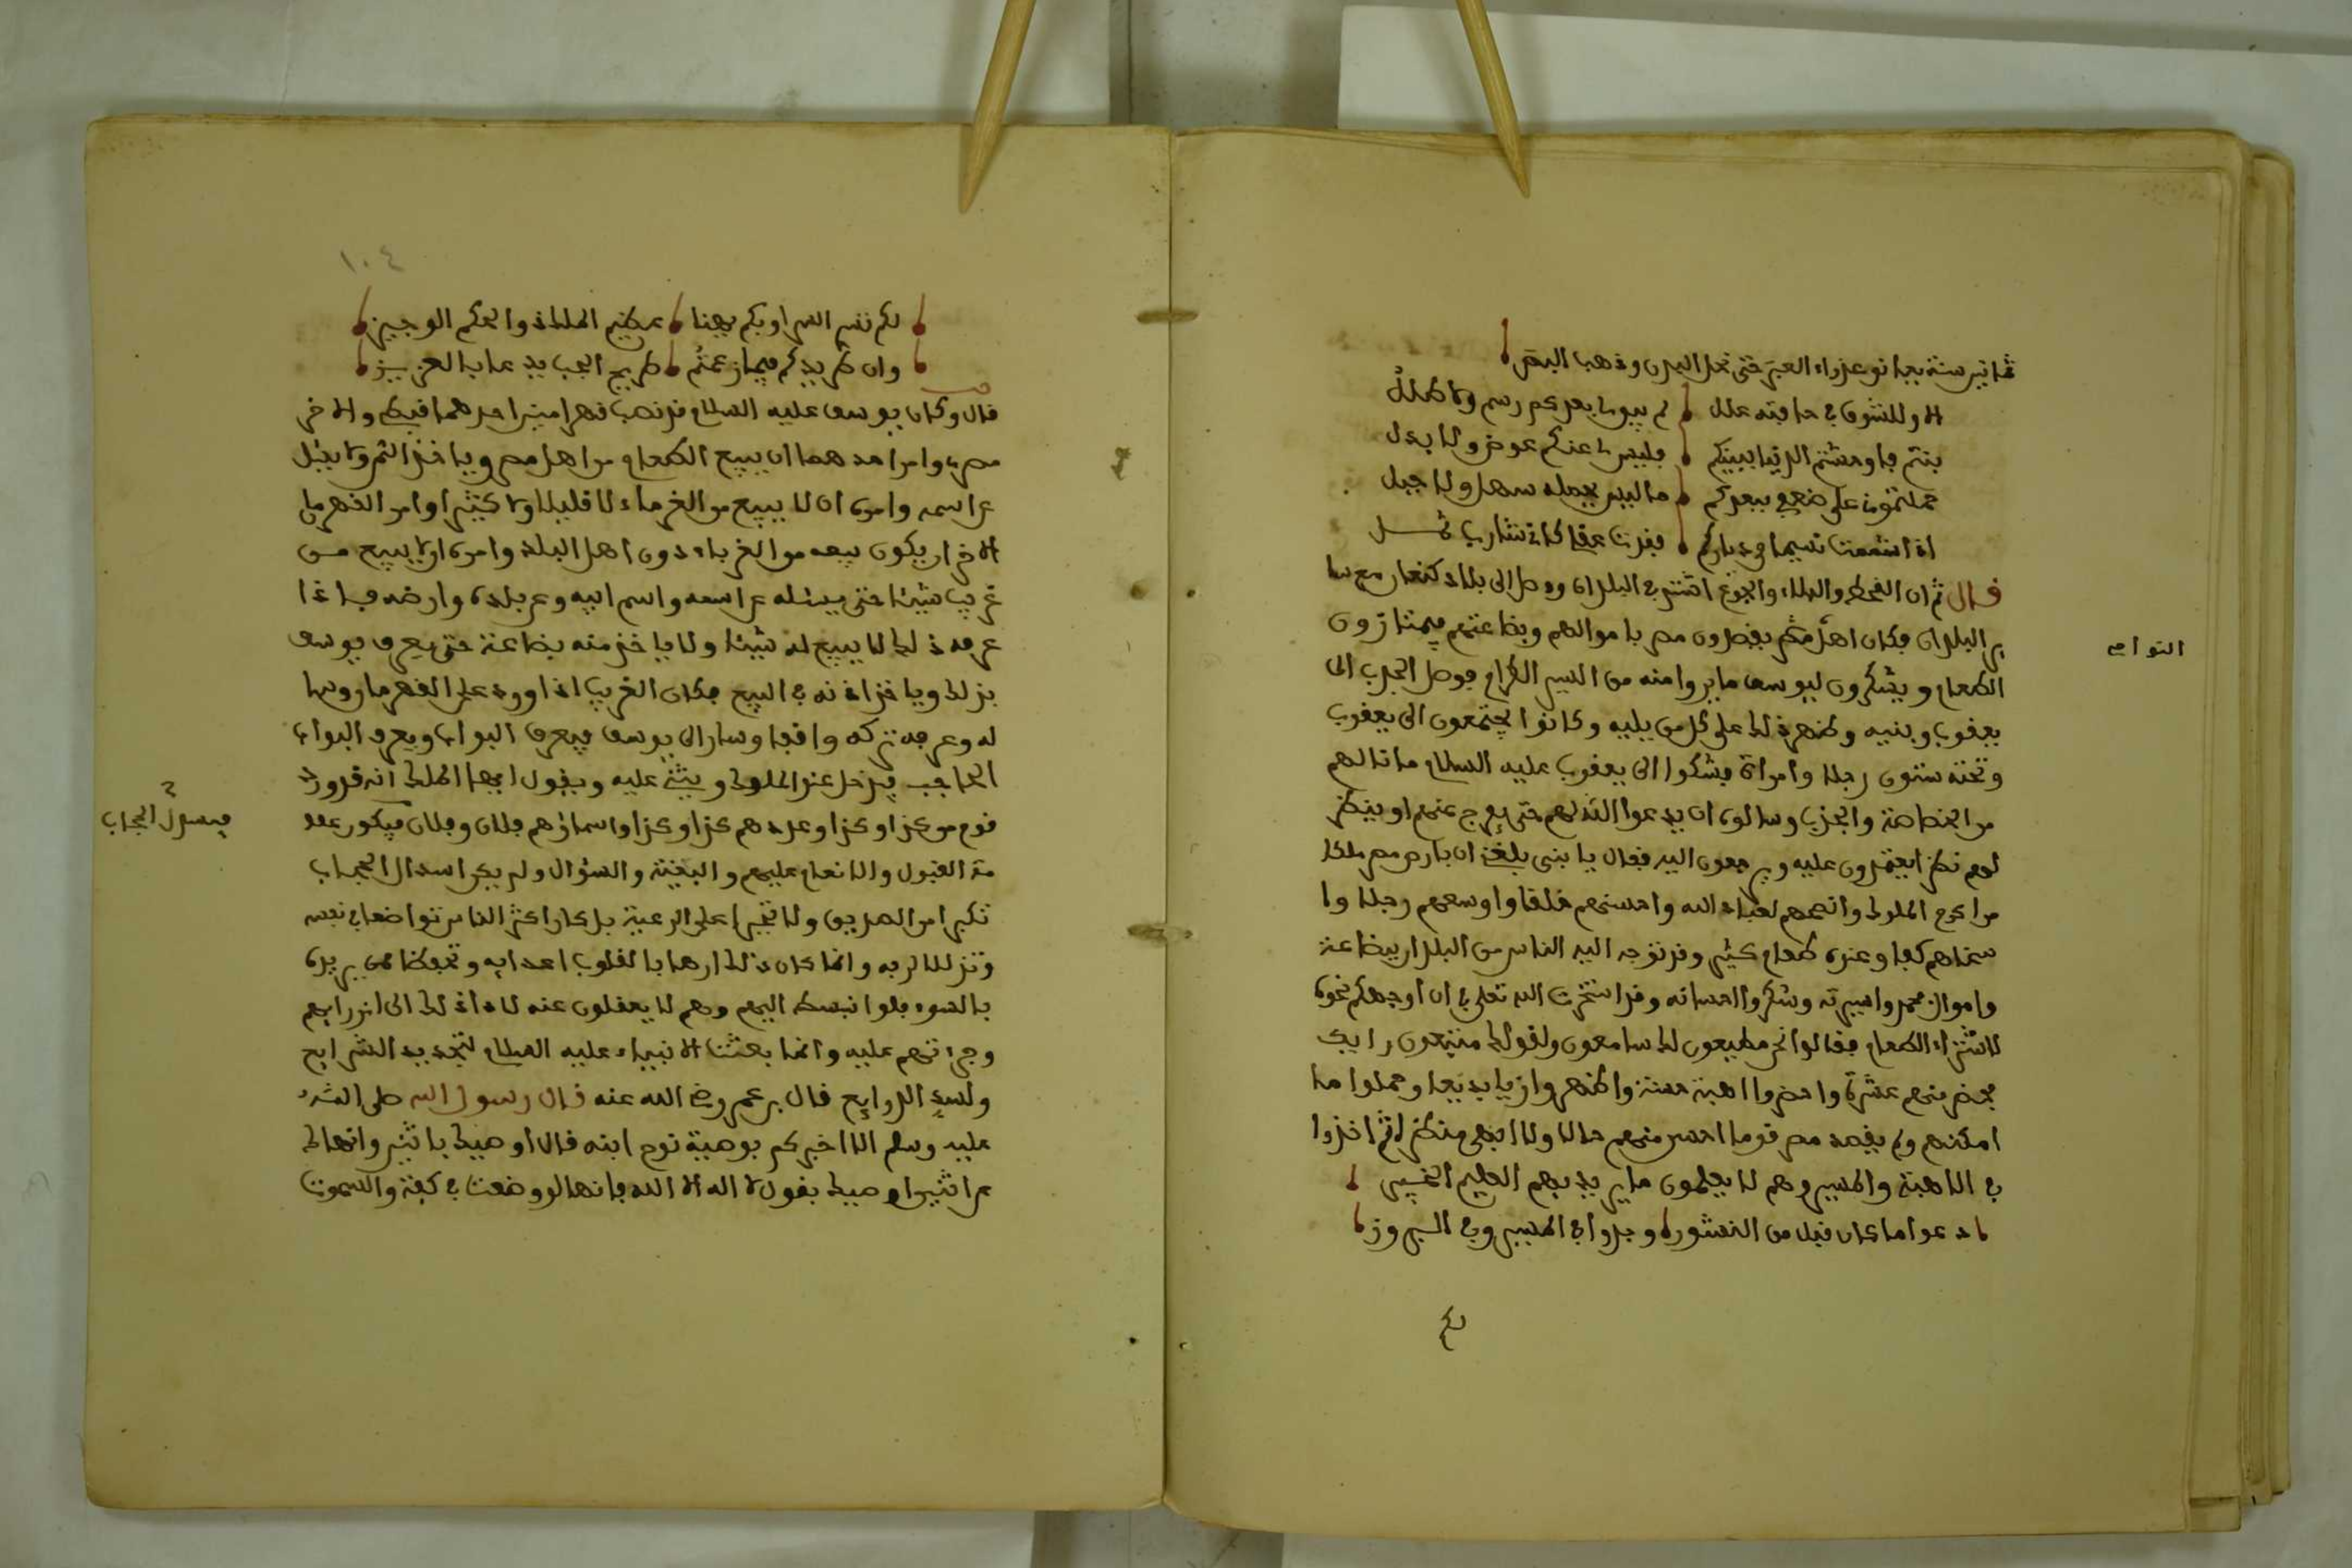 ثمانين سنة بعد نوعداء العبر حتى نحل البدن وذهب البصر
الا وللشوق في حافته علل لم يبق لي بعدكم رسم ولا طلل
بنتم فاوحشتم الدنيا ببينكم فليس لي عنكم عوض ولا بدل
حملتموني على ضعفي ببعدكم ما ليس يحمله سهل ولا جبل
اذا اشتممت نسيما من دياركم فقدت عقلي كاني شارب ثمل
قال ثم ان القحط والبلاء والجوع اشتد في البلدان ووصل الى بلاد كنعان مع سا
ير البلدان فكان اهلهم يقصدون مصر باموالهم وبضاعتهم فيمتارون
النواحى
الطعام ويشكرون ليوسف ما يروا منه من السير الكرام فوصل الجدب الى
يعقوب وبنيه وظهر ذلك على كل من يليه وكانوا يجتمعون الى يعقوب
وتحته ستون رجلا وامراة فشكوا الى يعقوب عليه السلام ما نالهم
من الخصاصة والجدب وسالوه ان يدعوا الله لهم حتى يفرج عنهم او ينظر
لهم نظرا يعتمدون عليه ويرجعون اليه فقال يا بني بلغني ان بارض مصر ملكا
من اكرم الملوك وانصحهم لعباد الله واحسنهم خلقا واوسعهم رحلا وا
سخاهم كفا وعنده طعام كثير وقد توجه اليه الناس من البلدان ببضاعة
واموال فحمدوا سيرته وشكروا احسانه وقد استخرت الله تعلى في ان اوجهكم نحوه
لاشتراء الطعام فقالوا نحن مطيعون لك سامعون ولقولك متبعون رايك
فحضر منهم عشرة واحضروا اهبة حسنة واظهروا زيا بديعا وحملوا ما
امكنهم ولم يقصد مصر قوما احسن منهم حالا ولا ابهى منظرا ثم اخذوا
في الاهبة والمسير وهم لا يعلمون ما يريد بهم العليم الخبير
دعوا ما كان قبل من النشور وجدوا في المسير وفي البروز
لكم
١٠٤
لكم ننسر السراوبكم بهنا عظيم الملاذ والحكم الوجيز
وان طريدكم فيما زعمتم طريح الجب يدعا بالعزيز
قال وكان يوسف عليه السلام قد نصب قهرامين احدهما قبطي والاخر
مصري وامر احدهما ان يبيع الطعام من اهل مصر وياخذ الثمن ولا يسئل
عن اسمه وامره ان لا يبيع من الغرباء لا قليلا ولا كثيرا وامر القهرمان
الاخر ان يكون بيعه من الغرباء دون اهل البلد وامره ان لا يبيع من
غريب شيئا حتى يسئله عن اسمه واسم ابيه وعن بلده وارضه فاذا
عرف ذلك لا يبيع له شيئا ولا ياخذ منه بضاعة حتى يعرف يوسف
بذلك وياخذ اذنه في البيع فكان الغريب اذا ورد على القهرمان وسا
له وعرفه تركه واقفا وسار الى يوسف فيعرف البواب ويعرف البواب
الحاجب فيدخل عند الملوك ويثني عليه ويقول ايها الملك انه قد ورد
قوم من كذا وكذا وعددهم كذا وكذا واسماؤهم فلان وفلان فيكون عند
فيسدل الحجاب
مة القبول والانعام عليهم والبغية والسؤال ولم يكن اسدال الحجاب
تكبرا من الصديق ولا تجبرا على الرعية بل كان اكثر الناس تواضعا في نفسه
وتذللا لربه وانما كان ذلك ارهابا لقلوب اعدايه وتحفظا ممن يريده
بالسوء فلو انبسط اليهم وهم لا يعقلون عنه لاداذلك الى ازدرايهم
وجراتهم عليه وانما بعثت الانبياء عليه السلام لتجديد الشرايع
ولسد الذرايع قال بن عمر رضي الله عنه قال رسول الله صلى الله
عليه وسلم الا اخبركم بوصية نوح ابنه قال اوصيك باثنين وانهاك
عن اثنين اوصيك بقول لا اله الا الله فانها لو وضعت في كفة والسموت